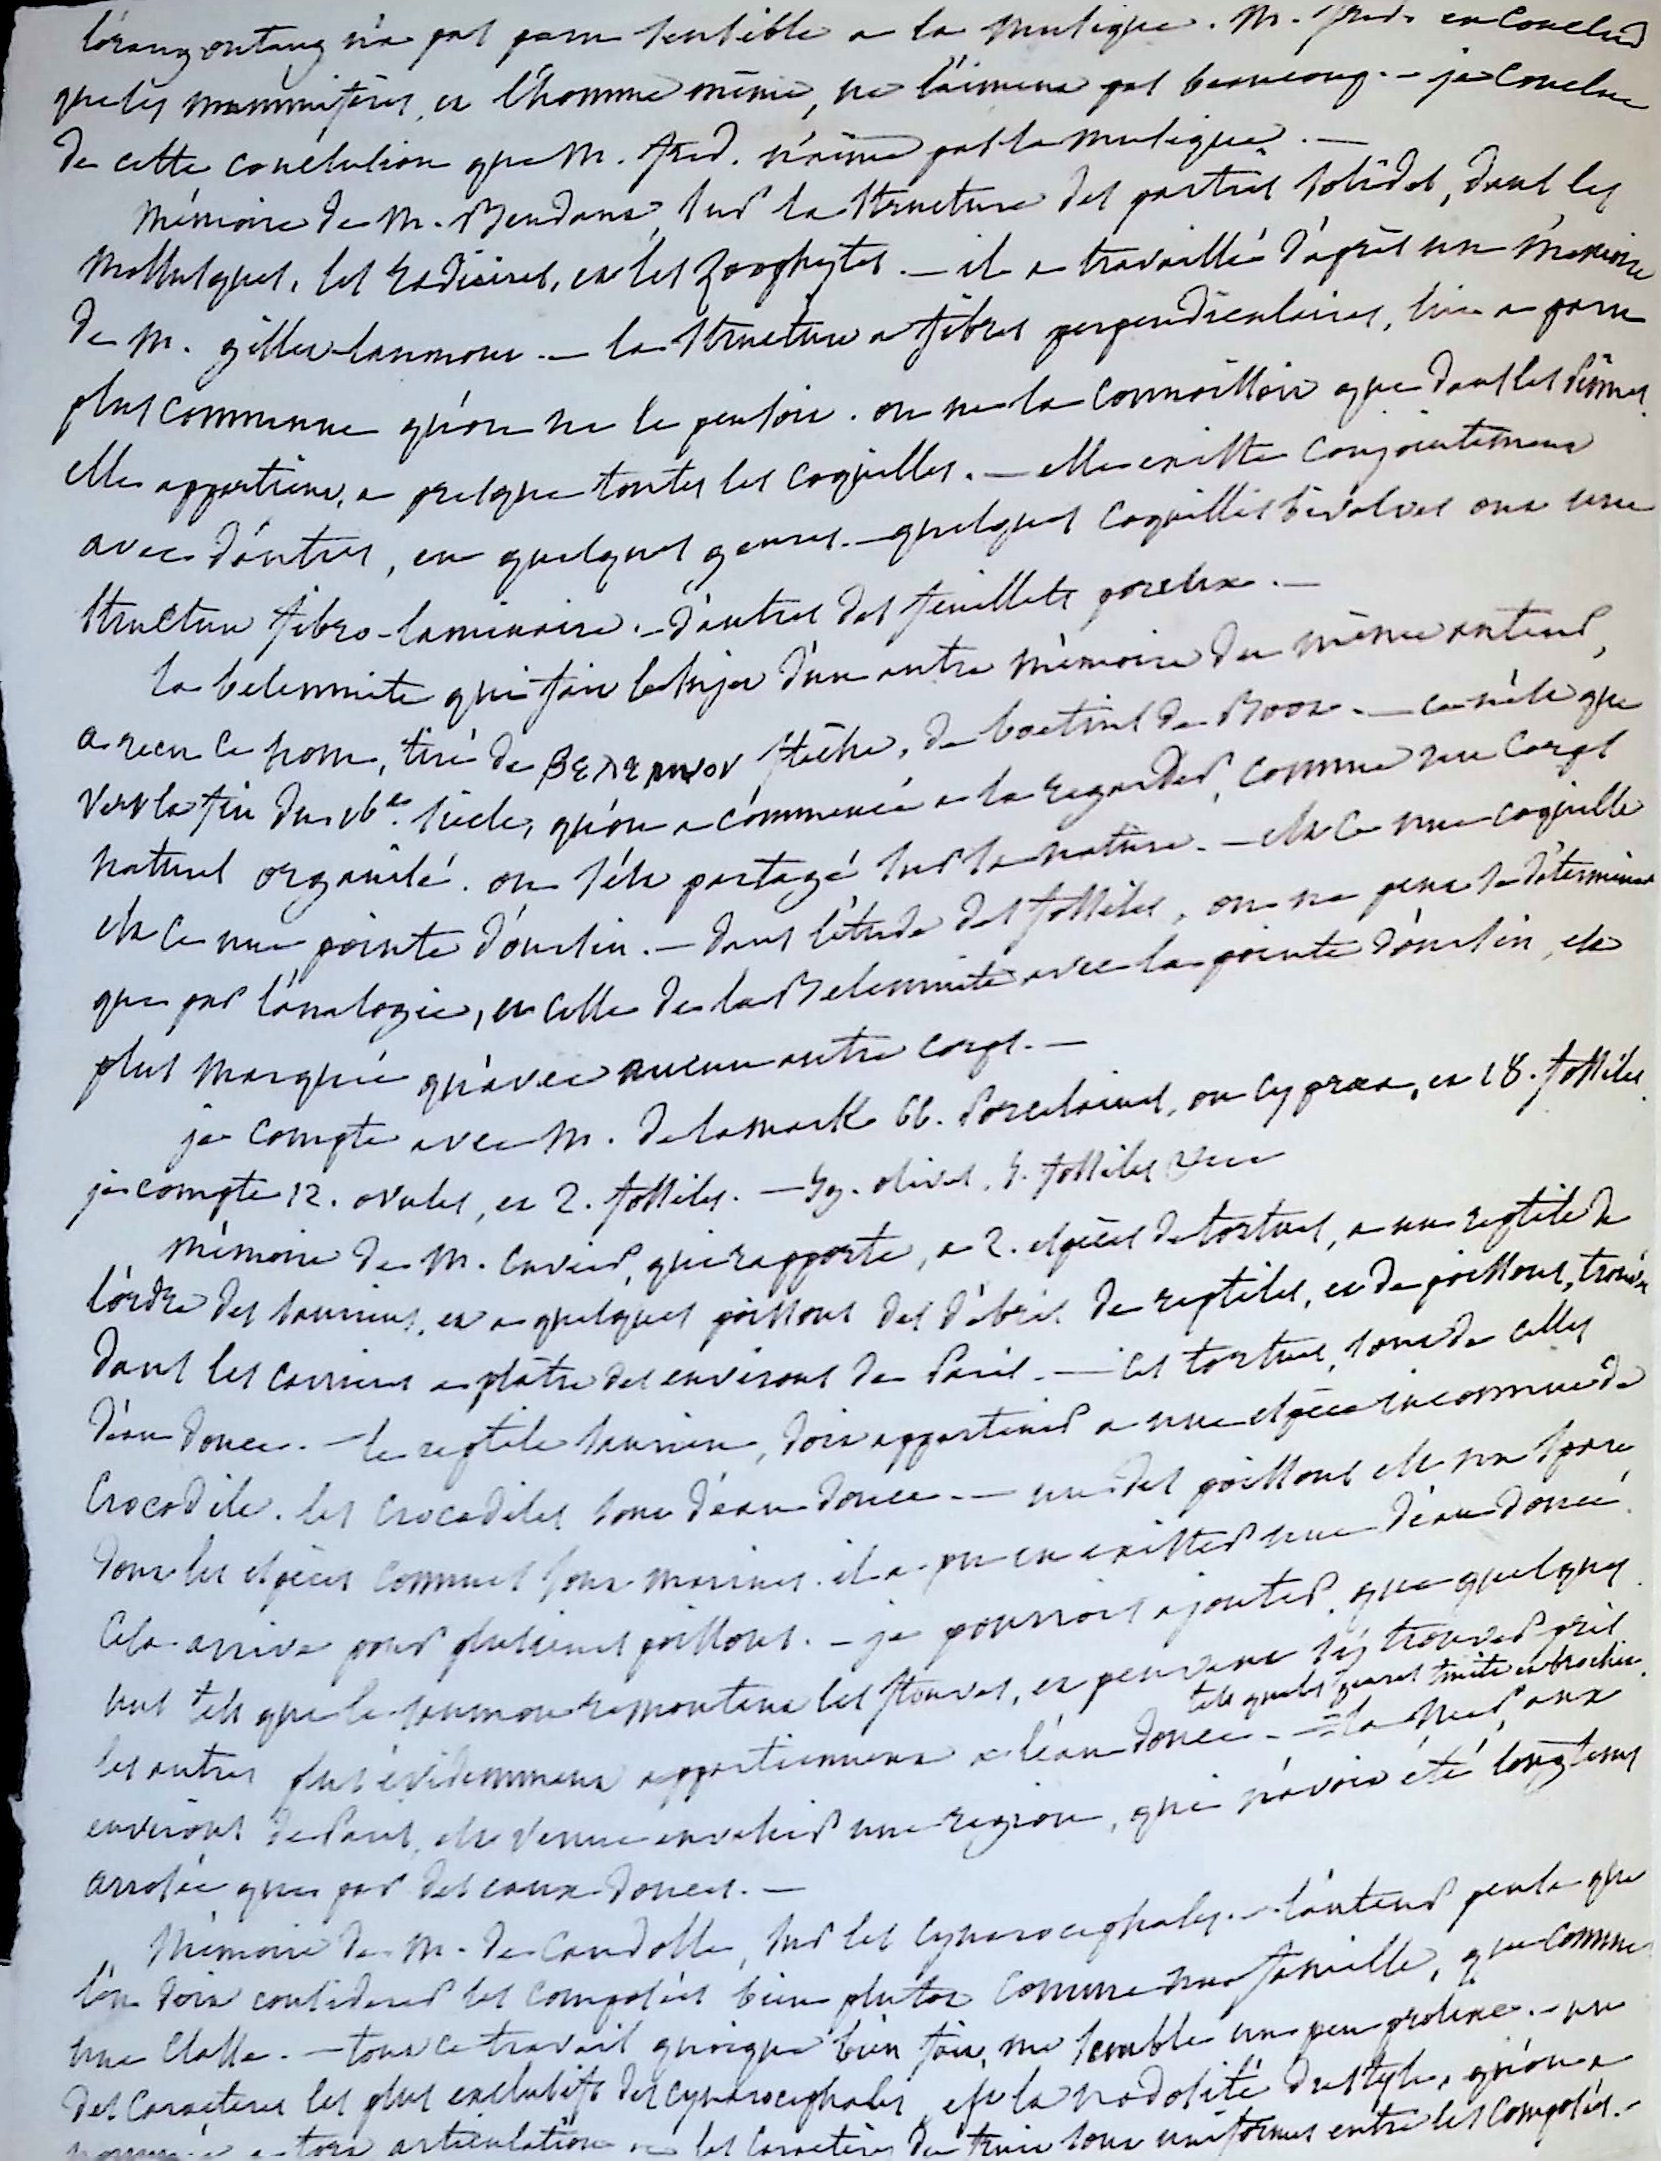 l'orang outang n'a pas paru sensible a la musique. M. fred. en conclud
que les mammiferes, et l'homme même, ne l'aiment pas beaucoup. – je conclue
de cette conclusion que M. fred. n'aime pas la musique. –
Mémoire de M. Beudant, sur la structure des parties solides, dans les
mollusques, les radiaires, et les zoophytes. – il a travaillé d'après un mémoire
de M. gillet-laumont. – la structure a fibres perpendiculaires, lui a paru
plus commune qu'on ne le pensoit. on ne la connoissoit que dans les pinnes.
elle appartient, a presque toutes les coquilles. – elle existe conjointement
avec d'autres, en quelques genres. – quelques coquilles bivalves ont une
structure fibro-laminaire. – d'autres des feuillets poreux. –
la belemnite qui fait le sujet d'un autre mémoire du même auteur,
a reçu ce nom, tiré de βελεμνον flèche, de Boot. – ce n'est que
vers la fin du 16e. siècle, qu'on a commencé a la regarder, comme un corps
naturel organisé. on s'est partagé sur sa nature. – est ce une coquille
est ce une pointe d'oursin. – dans l'étude des fossiles, on ne peut se déterminer
que par l'analogie, et celle de la Belemnite avec la pointe d'oursin, est
plus marquée qu'avec aucun autre corps. –
je compte avec M. de lamark 66. Porcelaines, ou cypræa, et 18. fossiles.
je compte 12. ovules, et 2. fossiles. – olives, 5. fossiles
Mémoire de M. Cuvier, qui rapporte, a 2. espèces de tortues, a un reptile de
l'ordre des sauriens, et a quelques poissons des débris de reptiles, et de poissons, trouvés
dans les carrieres a plâtre des environs de Paris. – ces tortues, sont de celles
d'eau douce. – le reptile saurien, doit appartenir a une espèce inconnue de
Crocodile. les crocodiles sont d'eau douce. – un des poissons est un spare
dont les espèces connues sont marines. il a pu en exister une d'eau douce.
Cela arrive pour plusieurs poissons. – je pourrois ajouter, que quelques
uns tels que le saumon remontent les fleuves, et peuvent s'y trouver pris
tels que les truite et brochet.
les autres plus évidemment appartiennent a l'eau douce. – la mer, aux
environs de Paris, est venue envahir une region, qui n'avoit été longtems
arrosée que par des eaux douces. –
Mémoire de M. de Candolle, sur les cynarocephales. – l'auteur pense que
l'on doit considerer les composées bien plutôt comme une famille, que comme
une classe. – tout ce travail quoique bien fait, me semble un peu prolixe. – un
des caracteres les plus exclusifs des cynarocephales, est la nodosité du style, qu'on a
nommée a tort articulation les caractères du fruit sont uniformes entre les composées. –